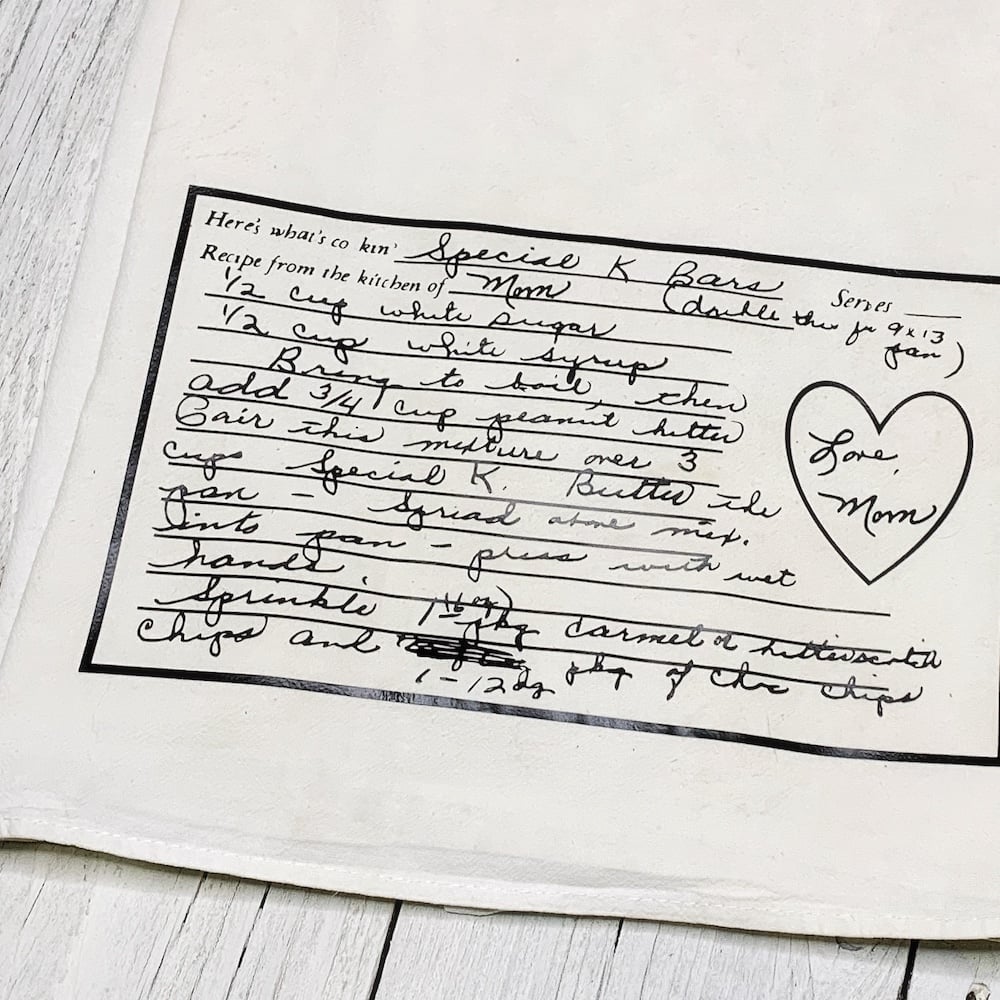 Here's what's cookin' Special K Bars
Recipe from the kitchen of Mom Serves
(double this for 9x13 pan)
1/2 cup white sugar
1/2 cup white syrup
Bring to boil, then
add 3/4 cup peanut butter
Pair this mixture over 3
cups Special K. Butter the
pan - Spread above mix.
into pan - press with wet
hands.
Sprinkle 1 pkg carmel or butterscotch
chips and 1-12 pkg of choc chips
Love,
Mom